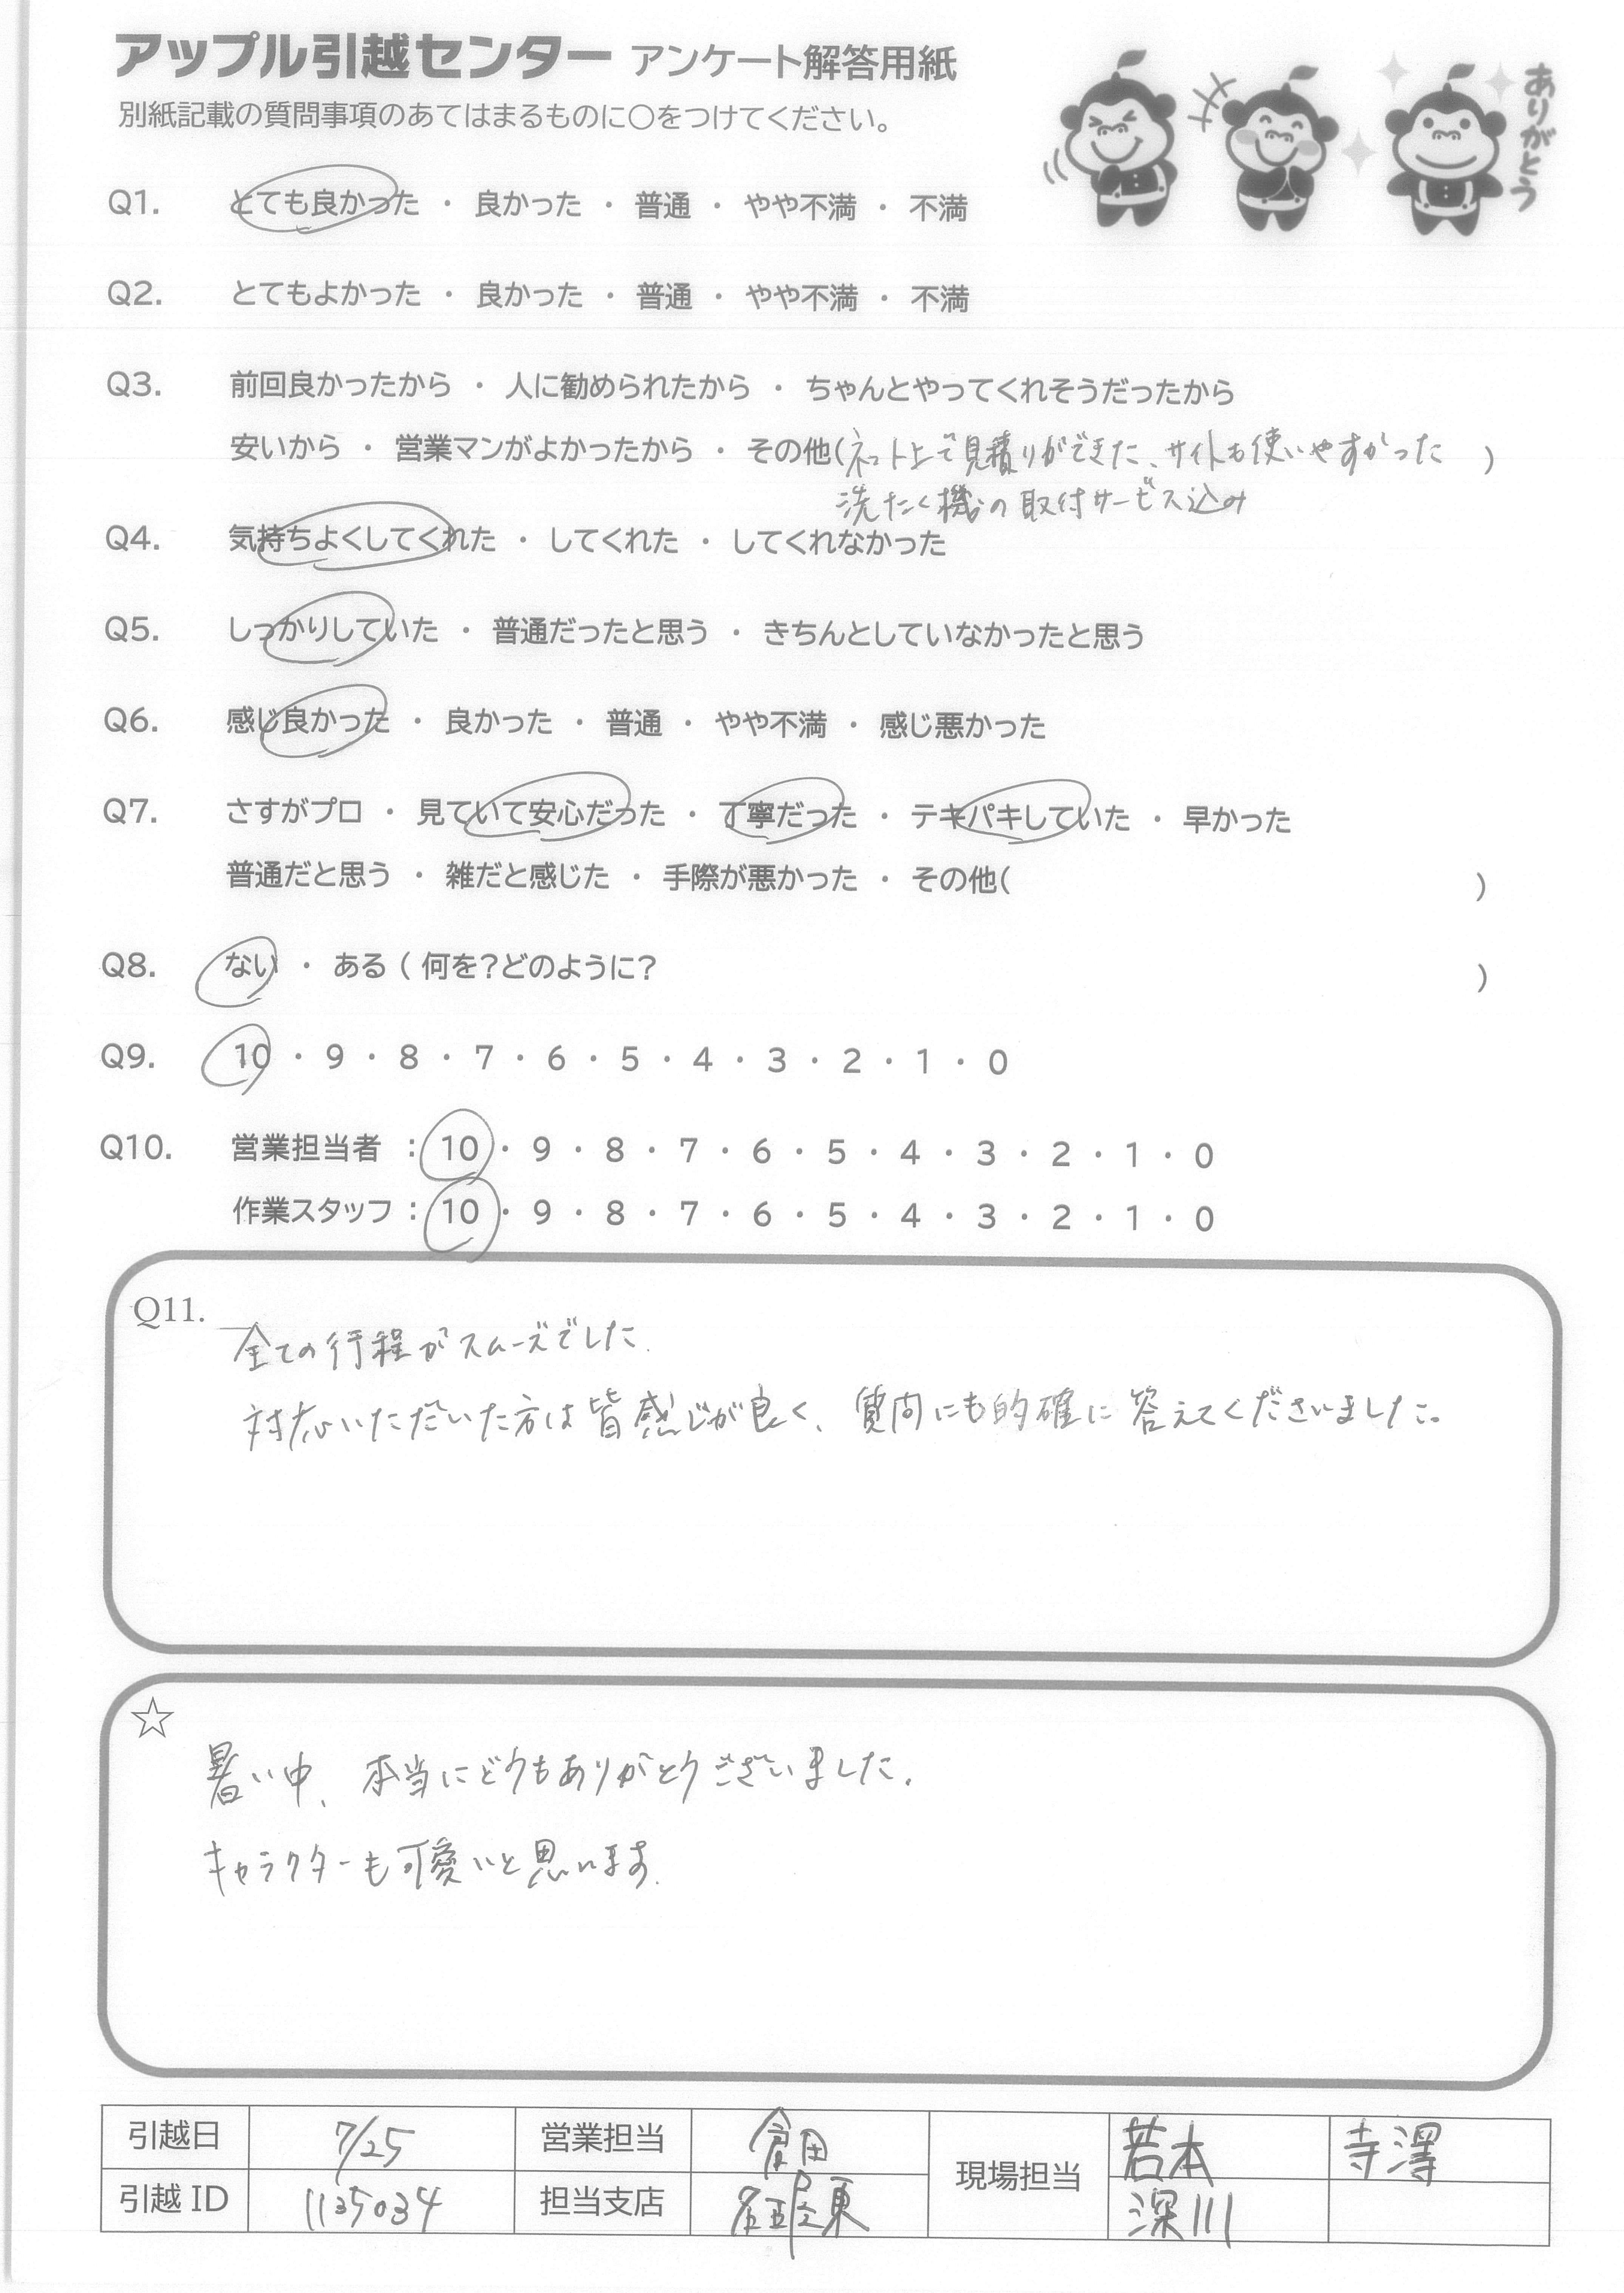 アップル引越センター アンケート解答用紙
別紙記載の質問事項のあてはまるものに○をつけてください。
ありがとう
Q1. とても良かった ・ 良かった ・ 普通 ・ やや不満 ・ 不満
Q2. とてもよかった ・ 良かった ・ 普通 ・ やや不満 ・ 不満
Q3. 前回良かったから ・ 人に勧められたから ・ ちゃんとやってくれそうだったから
安いから ・ 営業マンがよかったから ・ その他(ネット上で見積りができた、サイトも使いやすかった )
洗たく機の取付サービス込み
Q4. 気持ちよくしてくれた ・ してくれた ・ してくれなかった
Q5. しっかりしていた ・ 普通だったと思う ・ きちんとしていなかったと思う
Q6. 感じ良かった ・ 良かった ・ 普通 ・ やや不満 ・ 感じ悪かった
Q7. さすがプロ ・ 見ていて安心だった ・ 丁寧だった ・ テキパキしていた ・ 早かった
普通だと思う ・ 雑だと感じた ・ 手際が悪かった ・ その他( )
Q8. ない ・ ある ( 何を?どのように? )
Q9. 10 ・ 9 ・ 8 ・ 7 ・ 6 ・ 5 ・ 4 ・ 3 ・ 2 ・ 1 ・ 0
Q10. 営業担当者 : 10 ・ 9 ・ 8 ・ 7 ・ 6 ・ 5 ・ 4 ・ 3 ・ 2 ・ 1 ・ 0
作業スタッフ : 10 ・ 9 ・ 8 ・ 7 ・ 6 ・ 5 ・ 4 ・ 3 ・ 2 ・ 1 ・ 0
Q11.
全ての行程がスムーズでした.
対応いただいた方は皆感じが良く、質問にも的確に答えてくださいました。
☆
暑い中、本当にどうもありがとうございました.
キャラクターも可愛いと思います.
引越日 7/25 営業担当 倉田 現場担当 若本 寺澤
引越 ID 1135034 担当支店 深川